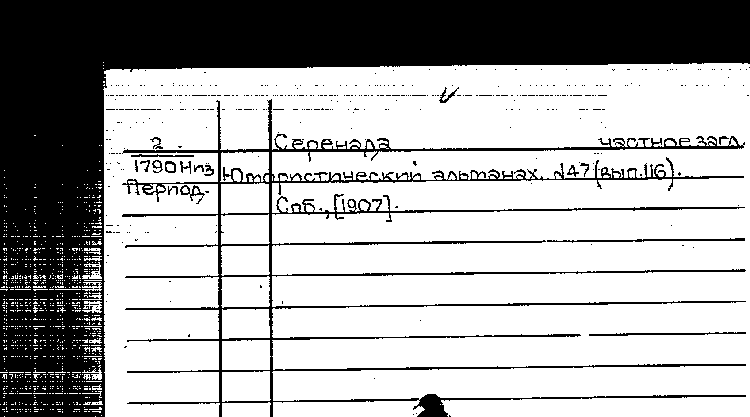 2
Серенада частное загл.
1790 Нпз
Юмористический альманах. №47 (вып.116).
Период.
Спб., [1907].